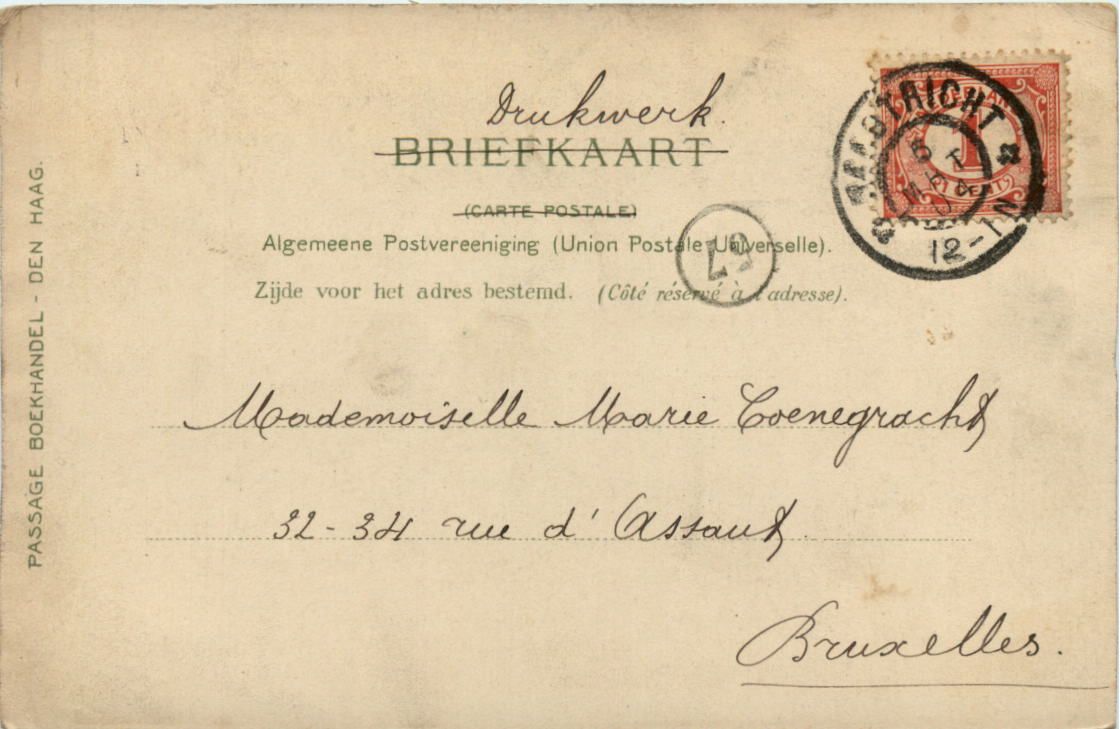 Drukwerk.
BRIEFKAART
(CARTE POSTALE)
Algemeene Postvereeniging (Union Postale Universelle).
Zijde voor het adres bestemd. (Côté réservé à l'adresse).
Mademoiselle Marie Coenegracht
32-34 rue d'Assaut
Bruxelles.
PASSAGE BOEKHANDEL - DEN HAAG.
MAASTRICHT
12-1N
1
CENT
57